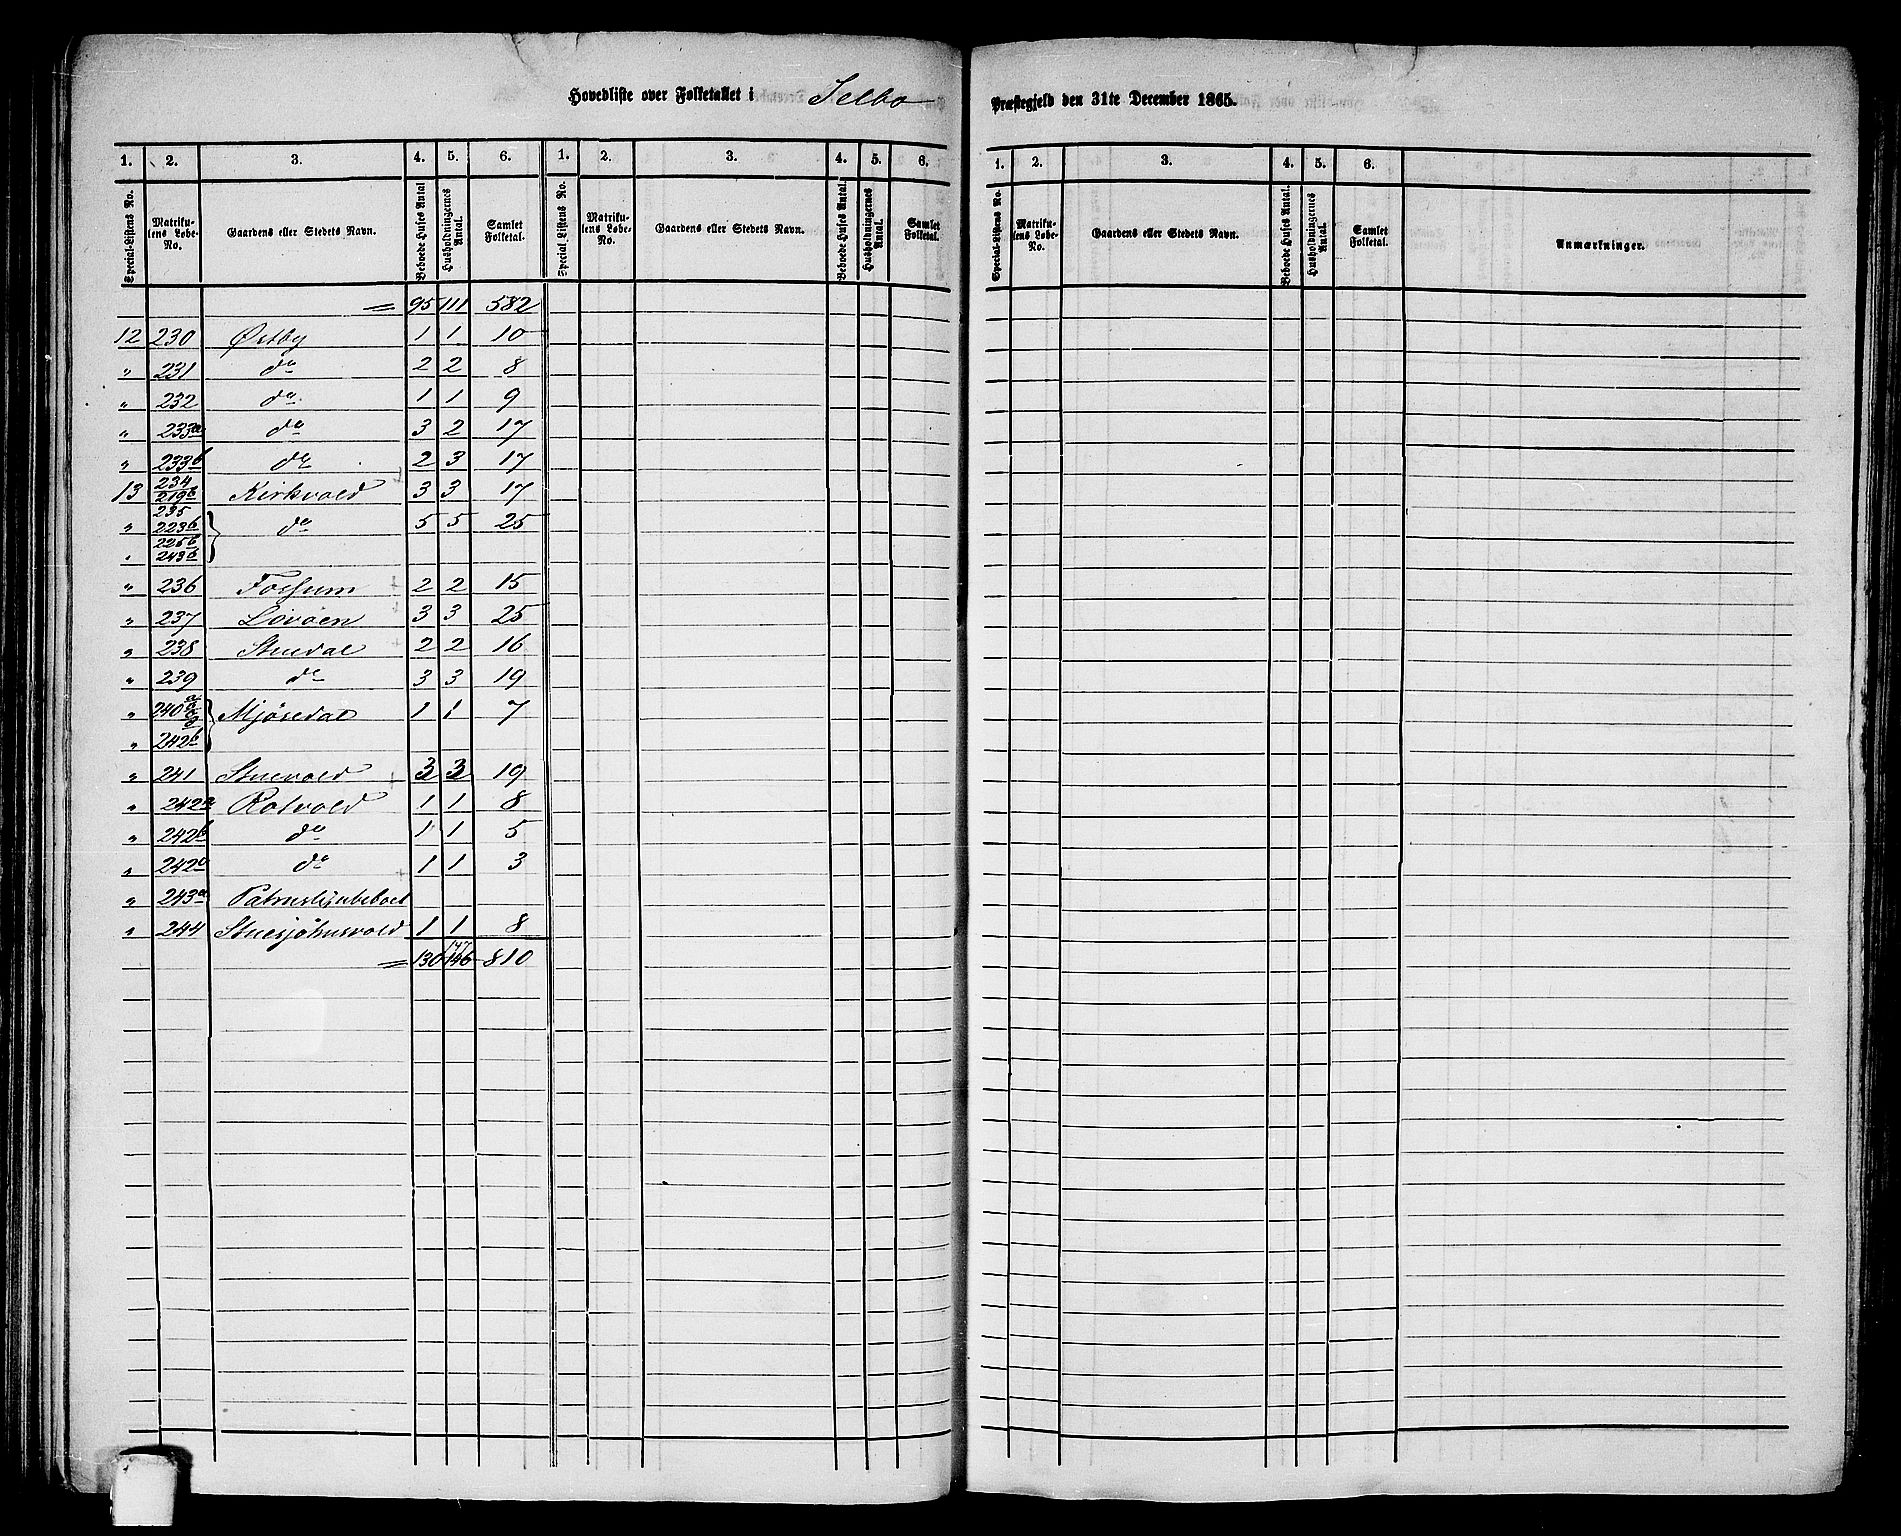 Hovedliste over Folketallet i Selbo Præstegjeld den 31te December 1865.
1. 2. 3. 4. 5. 6. 1. 2. 3. 4. 5. 6. 1. 2. 3. 4. 5. 6.
Special-Listens No. Matrikulens Løbe-No. Gaardens eller Stedets Navn. Beboede Huses Antal Husholdningernes Antal. Samlet Folketal. Special Listens No. Matrikulens Løbe-No. Gaardens eller Stedets Navn. Beboede Huses Antal. Husholdningernes Antal. Samlet Folketal. Special-Listens No. Matrikulens Løbe-No. Gaardens eller Stedets Navn. Beboede Huses Antal. Husholdningernes Antal. Samlet Folketal. Anmærkninger.
= 95 111 582
12 230 Østby 1 1 10
" 231 do 2 2 8
" 232 do 1 1 9
" 233a do 3 2 17
" 233b do 2 3 17
13 234 219b Kirkvold 3 3 17
" 235 223b do 5 5 25
" 225b 243b
" 236 Fossum 2 2 15
" 237 Løvøen 3 3 25
" 238 Stuedal 2 2 16
" 239 do 3 3 19
" 240 Mjösedal 1 1 7
" 242b
" 241 Stuevold 3 3 19
" 242a Rotvold 1 1 8
" 242b do 1 1 5
" 242a do 1 1 3
" 243a
" 244 Stuesjöhusvold 1 1 8
= 130 147 146 810